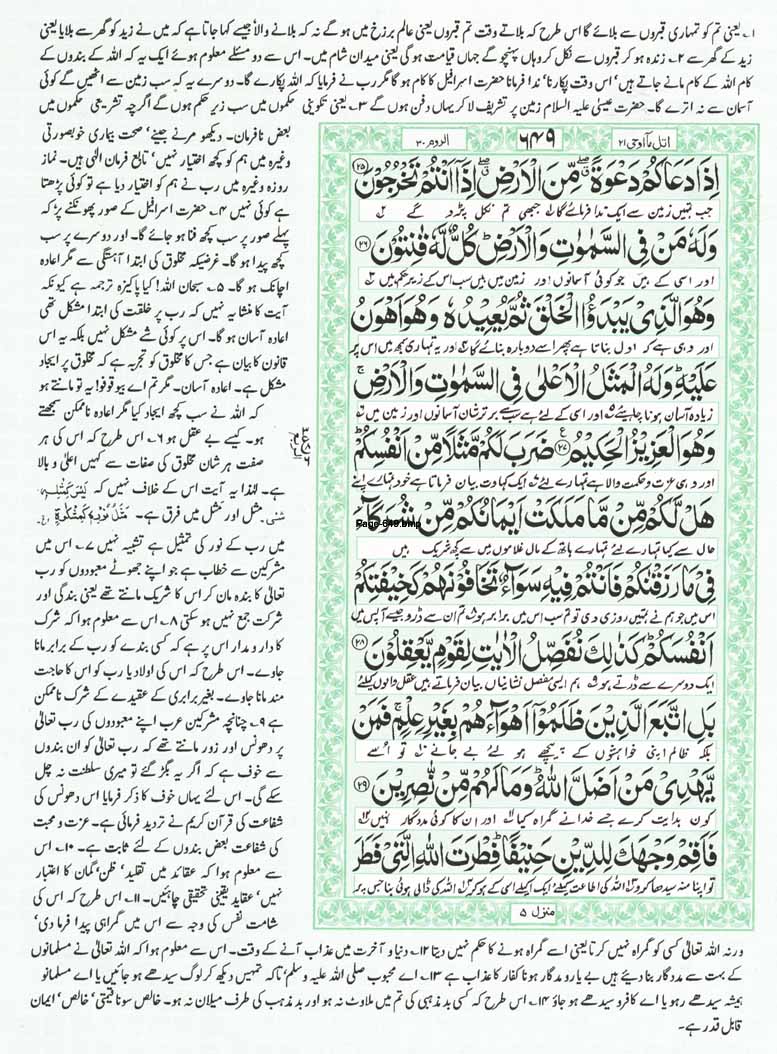 ۱؎ یعنی تم کو تمہاری قبروں سے بلائے گا اس طرح کہ بلاتے وقت تم قبروں یعنی عالم برزخ میں ہو گے نہ کہ بلانے والا جیسے کہا جاتا ہے کہ میں نے زید کو گھر سے بلایا یعنی
زید کے گھر سے ۲؎ زندہ ہو کر قبروں سے نکل کر وہاں پہنچو گے جہاں قیامت ہو گی یعنی میدان شام میں۔ اس سے دو مسئلے معلوم ہوئے ایک یہ کہ اللہ کے بندوں کے
کام اللہ کے کام مانے جاتے ہیں' اس وقت پکارنا' ندا فرمانا حضرت اسرافیل کا کام ہو گا مگر رب نے فرمایا کہ اللہ پکارے گا۔ دوسرے یہ کہ سب زمین سے اٹھیں گے کوئی
آسمان سے نہ اترے گا۔ حضرت عیسیٰ علیہ السلام زمین پر تشریف لا کر یہاں دفن ہوں گے ۳؎ یعنی تکوینی حکموں میں سب زیر حکم ہوں گے اگرچہ تشریعی حکموں میں
اتل ما اوحی ۲۱
۶۴۹
الروم ۳۰
اِذَا دَعَاكُمْ دَعْوَةً مِّنَ الْاَرْضِ اِذَاۤ اَنْتُمْ تَخْرُجُوْنَ ۲۵
جب تمہیں زمین سے ایک ندا فرمائے گا جبھی تم نکل پڑو گے
وَلَهٗ مَنْ فِی السَّمٰوٰتِ وَالْاَرْضِ كُلٌّ لَّهٗ قٰنِتُوْنَ ۲۶
اور اسی کے ہیں جو کوئی آسمانوں اور زمین میں ہیں سب اس کے زیر حکم ہیں
وَهُوَ الَّذِیْ یَبْدَؤُا الْخَلْقَ ثُمَّ یُعِیْدُهٗ وَهُوَ اَهْوَنُ
اور وہی ہے کہ اول بناتا ہے پھر اسے دوبارہ بنائے گا اور یہ تمہاری سمجھ میں اس پر
عَلَیْهِ وَلَهُ الْمَثَلُ الْاَعْلٰی فِی السَّمٰوٰتِ وَالْاَرْضِ
زیادہ آسان ہونا چاہیئے اور اسی کے لئے ہے سب سے برتر شان آسمانوں اور زمین میں
وَهُوَ الْعَزِیْزُ الْحَكِیْمُ ۲۷ ضَرَبَ لَكُمْ مَّثَلًا مِّنْ اَنْفُسِكُمْ
اور وہی عزت و حکمت والا ہے تمہارے لئے ایک کہاوت بیان فرماتا ہے خود تمہارے اپنے
هَلْ لَّكُمْ مِّنْ مَّا مَلَكَتْ اَیْمَانُكُمْ مِّنْ شُرَكَآءَ
Page-649.bmp
حال سے کیا تمہارے لئے تمہارے ہاتھ کے مال غلاموں میں سے کچھ شریک ہیں
فِیْ مَا رَزَقْنٰكُمْ فَاَنْتُمْ فِیْهِ سَوَآءٌ تَخَافُوْنَهُمْ كَخِیْفَتِكُمْ
اس میں جو ہم نے تمہیں روزی دی تو تم سب اس میں برابر ہو تم ان سے ڈرو جیسے آپس میں
اَنْفُسَكُمْ كَذٰلِكَ نُفَصِّلُ الْاٰیٰتِ لِقَوْمٍ یَّعْقِلُوْنَ ۲۸
ایک دوسرے سے ڈرتے ہو ہم ایسی مفصل نشانیاں بیان فرماتے ہیں عقل والوں کیلئے
بَلِ اتَّبَعَ الَّذِیْنَ ظَلَمُوْۤا اَهْوَآءَهُمْ بِغَیْرِ عِلْمٍ فَمَنْ
بلکہ ظالم اپنی خواہشوں کے پیچھے ہو لئے بے جانے تو اُسے
یَّهْدِیْ مَنْ اَضَلَّ اللّٰهُ وَمَا لَهُمْ مِّنْ نّٰصِرِیْنَ ۲۹
کون ہدایت کرے جسے خدا نے گمراہ کیا اور ان کا کوئی مددگار نہیں
فَاَقِمْ وَجْهَكَ لِلدِّیْنِ حَنِیْفًا فِطْرَتَ اللّٰهِ الَّتِیْ فَطَرَ
تو اپنا منہ سیدھا کرو اللہ کی اطاعت کیلئے ایک اکیلے اسی کے ہو کر اللہ کی ڈالی ہوئی بنا جس پر
منزل ۵
بعض نافرمان۔ دیکھو مرنے جینے' صحت بیماری خوبصورتی
وغیرہ میں ہم کو کچھ اختیار نہیں' تابع فرمان الٰہی ہیں۔ نماز
روزہ وغیرہ میں رب نے ہم کو اختیار دیا ہے تو کوئی پڑھتا
ہے کوئی نہیں ۴؎ حضرت اسرافیل کے صور پھونکنے پر' کہ
پہلے صور پر سب کچھ فنا ہو جائے گا۔ اور دوسرے پر سب
کچھ پیدا ہو گا۔ غرضیکہ مخلوق کی ابتدا آہستگی سے مگر اعادہ
اچانک ہو گا۔ ۵؎ سبحان اللہ! کیا پاکیزہ ترجمہ ہے کیونکہ
آیت کا منشا یہ نہیں کہ رب پر خلقت کی ابتدا مشکل تھی
اعادہ آسان ہو گا۔ اس پر کوئی شے مشکل نہیں بلکہ یہ اس
قانون کا بیان ہے جس کا مخلوق کو تجربہ ہے کہ مخلوق پر ایجاد
مشکل ہے۔ اعادہ آسان۔ مگر تم اے بیوقوفو! یہ تو مانتے ہو
کہ اللہ نے سب کچھ ایجاد کیا مگر اعادہ ناممکن سمجھتے
ہو۔ کیسے بے عقل ہو ۶؎ اس طرح کہ اس کی ہر
صفت ہر شان مخلوق کی صفات سے کہیں اعلیٰ و بالا
ہے۔ لہٰذا یہ آیت اس کے خلاف نہیں کہ لَیْسَ كَمِثْلِهٖ
شَیْءٌ مثل اور مَثَل میں فرق ہے۔ مَثَلُ نُوْرِهٖ كَمِشْكٰوةٍ
میں رب کے نور کی تمثیل ہے تشبیہ نہیں ۷؎ اس میں
مشرکین سے خطاب ہے جو اپنے جھوٹے معبودوں کو رب
تعالیٰ کا بندہ مان کر اس کا شریک مانتے تھے یعنی بندگی اور
شرکت جمع نہیں ہو سکتی ۸؎ اس سے معلوم ہوا کہ شرک
کا دار و مدار اس پر ہے کہ کسی بندے کو رب کے برابر مانا
جاوے۔ اس طرح کہ اس کی اولاد یا رب کو اس کا حاجت
مند مانا جاوے۔ بغیر برابری کے عقیدے کے شرک ناممکن
ہے ۹؎ چنانچہ مشرکین عرب اپنے معبودوں کی رب تعالیٰ
پر دھونس اور زور مانتے تھے کہ رب تعالیٰ کو ان بندوں
سے خوف ہے کہ اگر یہ بگڑ گئے تو میری سلطنت نہ چل
سکے گی۔ اس لئے یہاں خوف کا ذکر فرمایا اس دھونس کی
شفاعت کی قرآن کریم نے تردید فرمائی ہے۔ عزت و محبت
کی شفاعت بعض بندوں کے لئے ثابت ہے۔ ۱۰؎ اس
سے معلوم ہوا کہ عقائد میں تقلید' ظن' گمان کا اعتبار
نہیں' عقاید یقینی تحقیقی چاہئیں۔ ۱۱؎ اس طرح کہ اس کی
شامت نفس کی وجہ سے اس میں گمراہی پیدا فرما دی'
ورنہ اللہ تعالیٰ کسی کو گمراہ نہیں کرتا یعنی اسے گمراہ ہونے کا حکم نہیں دیتا ۱۲؎ دنیا و آخرت میں عذاب آنے کے وقت۔ اس سے معلوم ہوا کہ اللہ تعالیٰ نے مسلمانوں
کے بہت سے مددگار بنا دیئے ہیں بے یار و مددگار ہونا کفار کا عذاب ہے ۱۳؎ اے محبوب صلی اللہ علیہ وسلم' تاکہ تمہیں دیکھ کر لوگ سیدھے ہو جائیں یا اے مسلمانو
ہمیشہ سیدھے رہو یا اے کافرو سیدھے ہو جاؤ ۱۴؎ اس طرح کہ کسی بد مذہبی کی تم میں ملاوٹ نہ ہو اور بد مذہب کی طرف میلان نہ ہو۔ خالص سونا قیمتی' خالص' ایمان
قابل قدر ہے۔